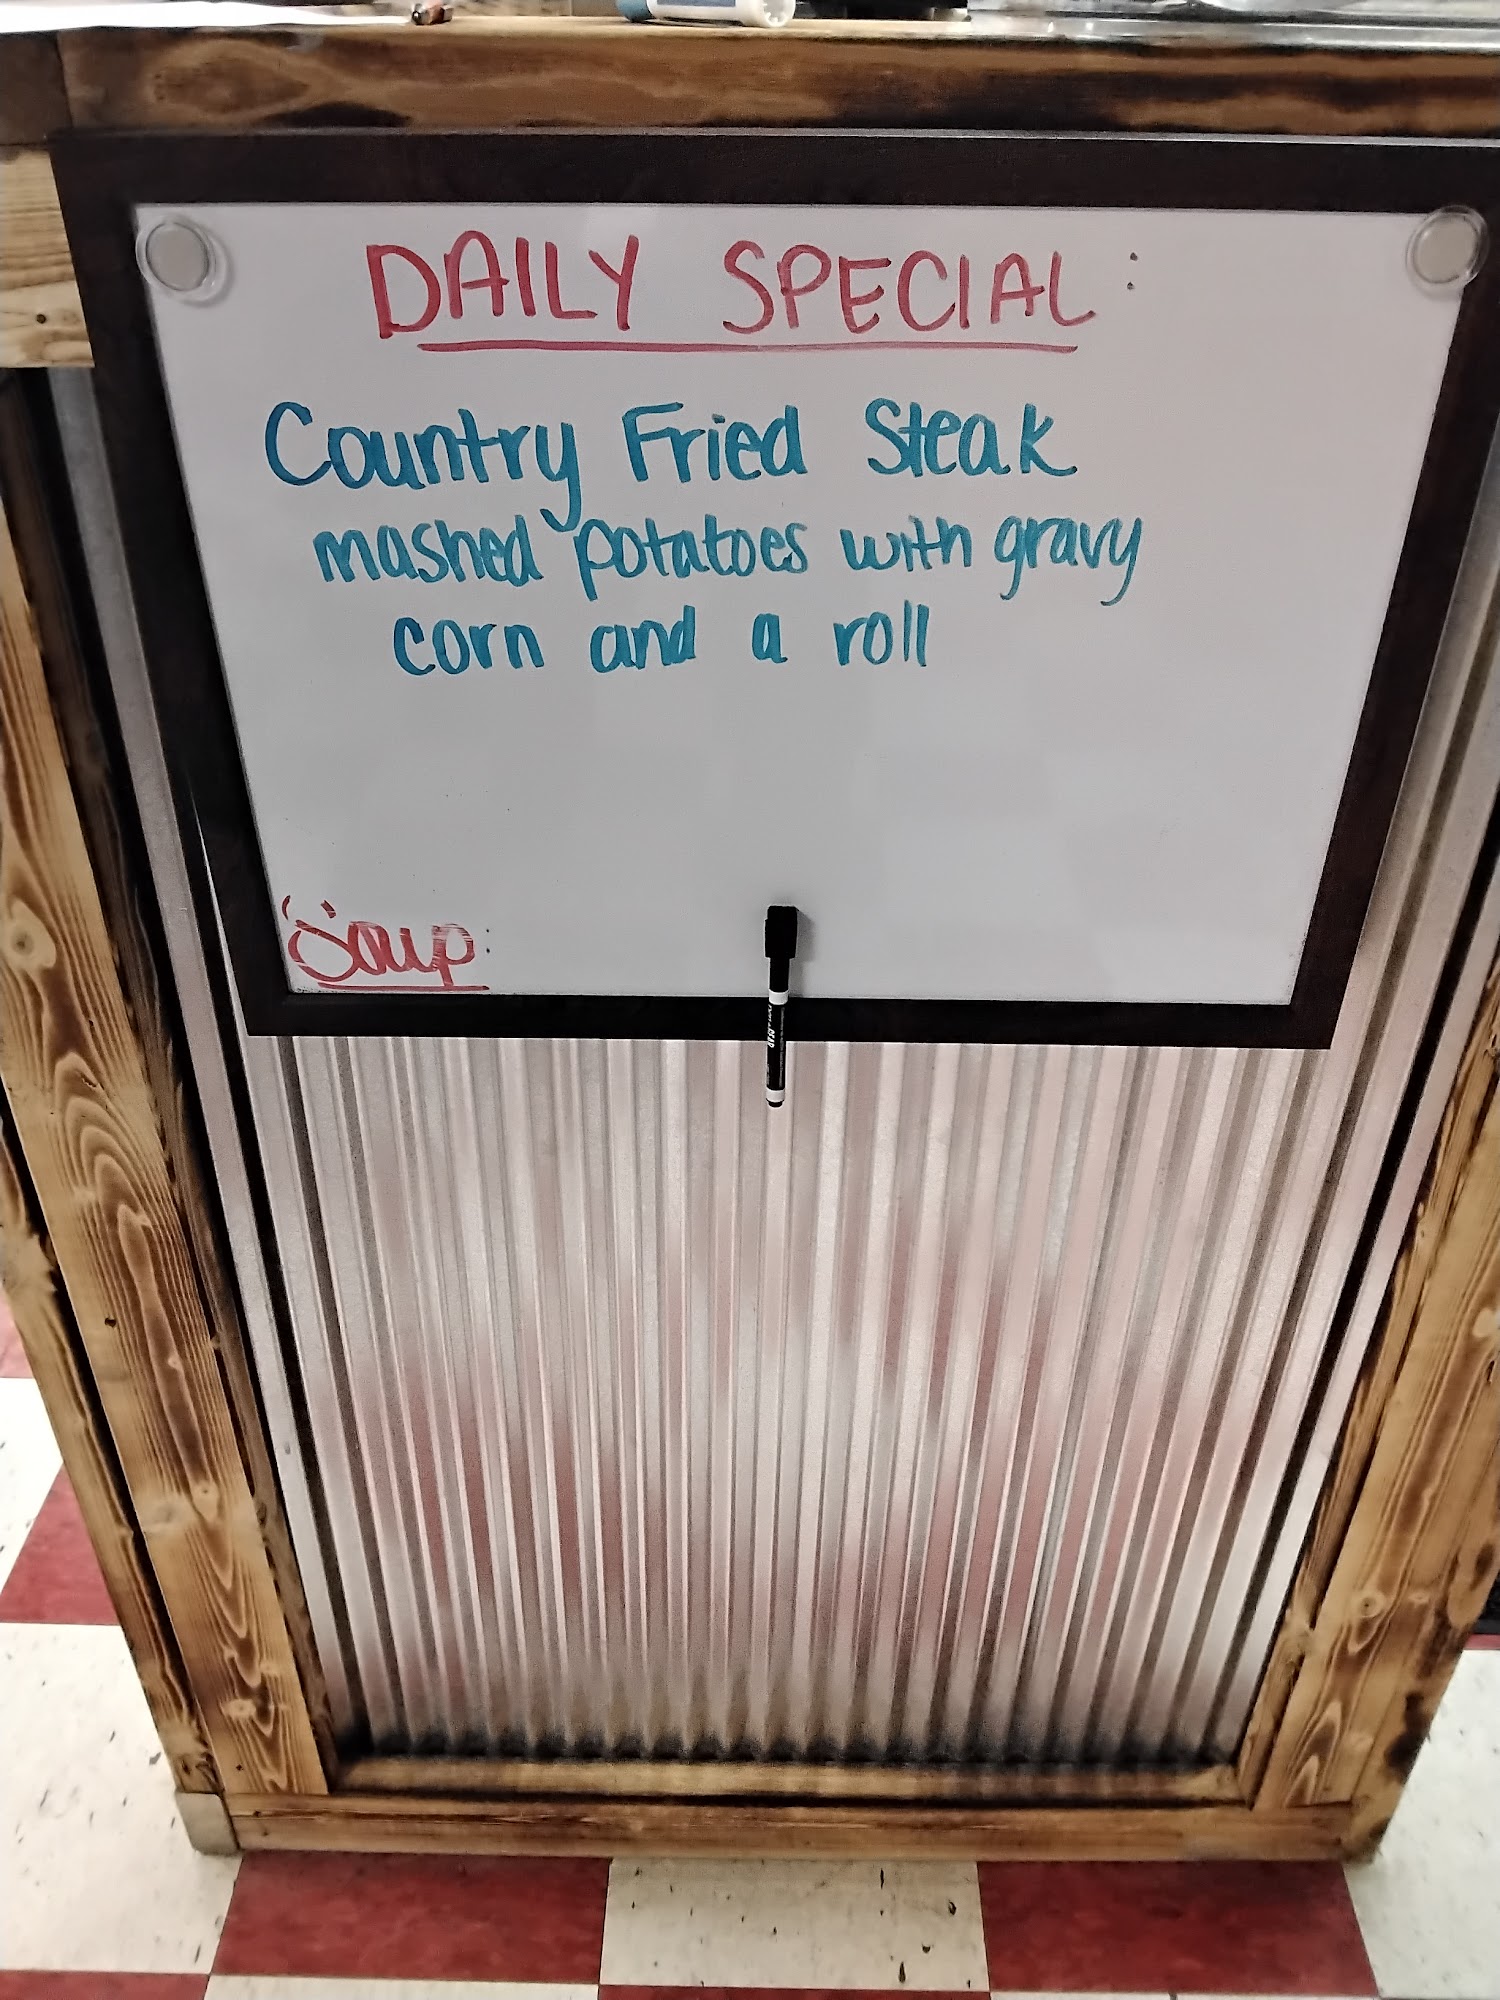 DAILY SPECIAL:
Country Fried Steak
mashed potatoes with gravy
corn and a roll
Soup: